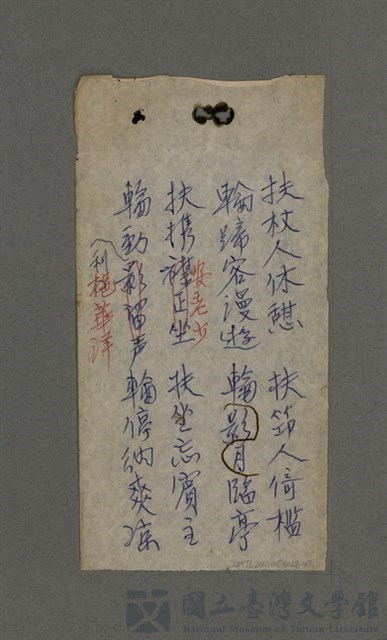 扶杖人休憩　扶筇人倚檻
輪蹄客漫遊　輪影月臨亭
扶携襟正坐　扶坐忘賓主
安老少
輪動影留声　輪停納爽涼
利 華洋
國立臺灣文學館
National Museum of Taiwan Literature